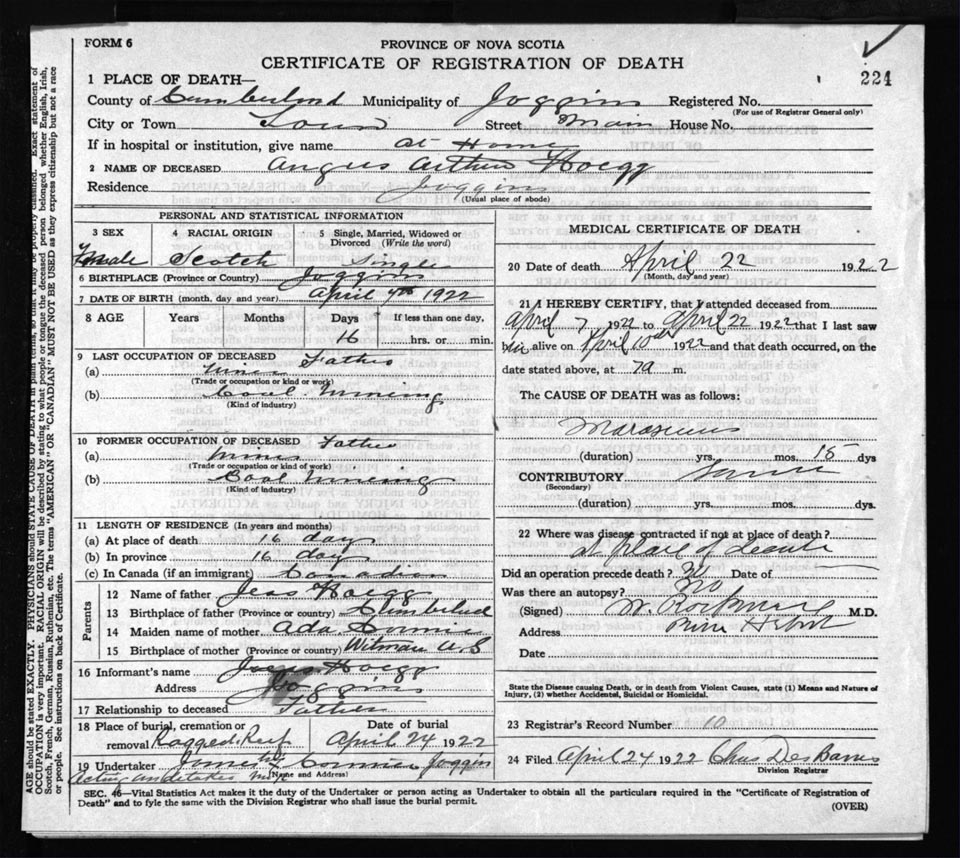 FORM 6
PROVINCE OF NOVA SCOTIA
CERTIFICATE OF REGISTRATION OF DEATH
224
1 PLACE OF DEATH—
County of Cumberland Municipality of Joggins Registered No.
(For use of Registrar General only)
City or Town Town Street Main House No.
If in hospital or institution, give name at Home
2 NAME OF DECEASED Angus Arthur Hoegg
Residence Joggins
(Usual place of abode)
PERSONAL AND STATISTICAL INFORMATION
3 SEX 4 RACIAL ORIGIN 5 Single, Married, Widowed or Divorced (Write the word)
Scotch Single
6 BIRTHPLACE (Province or Country) Joggins
7 DATE OF BIRTH (month, day and year) April 7th 1922
8 AGE Years Months Days If less than one day,
16 hrs. or min.
9 LAST OCCUPATION OF DECEASED Father
(a) Miner
(Trade or occupation or kind or work)
(b) Coal Mineing
(Kind of industry)
10 FORMER OCCUPATION OF DECEASED Father
(a) Miner
(Trade or occupation or kind or work)
(b) Coal Mineing
(Kind of industry)
11 LENGTH OF RESIDENCE (In years and months)
(a) At place of death 16 days
(b) In province 16 days
(c) In Canada (if an immigrant) Canadian
Parents
12 Name of father Jess Hoegg
13 Birthplace of father (Province or country)
14 Maiden name of mother Ada
15 Birthplace of mother (Province or country)
16 Informant's name Hoegg
Address Joggins
17 Relationship to deceased Father
18 Place of burial, cremation or removal Ragged Reef Date of burial April 24 1922
19 Undertaker Cormier Joggins
(Name and Address)
Acting undertaker
MEDICAL CERTIFICATE OF DEATH
20 Date of death April 22 1922
(Month, day and year)
21 I HEREBY CERTIFY, that I attended deceased from
April 7 1922 to April 22 1922 that I last saw
him alive on April 10th 1922 and that death occurred, on the
date stated above, at 7a m.
The CAUSE OF DEATH was as follows:
Marasmus
(duration) yrs. mos. 15 dys
CONTRIBUTORY
(Secondary)
(duration) yrs. mos. dys.
22 Where was disease contracted if not at place of death?
at place of death
Did an operation precede death? No Date of
Was there an autopsy? No
(Signed) W. M.D.
Address River Hebert
Date
State the Disease causing Death, or in death from Violent Causes, state (1) Means and Nature of
Injury, (2) whether Accidental, Suicidal or Homicidal.
23 Registrar's Record Number 10
24 Filed April 24 1922 Chas DesBarres
Division Registrar
SEC. 46—Vital Statistics Act makes it the duty of the Undertaker or person acting as Undertaker to obtain all the particulars required in the "Certificate of Registration of
Death" and to fyle the same with the Division Registrar who shall issue the burial permit.
(OVER)
AGE should be stated EXACTLY. PHYSICIANS should STATE CAUSE OF DEATH in plain terms, so that it may be properly classified. Exact statement of
OCCUPATION is very important. RACIAL ORIGIN will be described by stating to what people or tongue the deceased person belonged whether English, Irish,
Scotch, French, German, Russian, Ruthenian, etc. The terms "AMERICAN" OR "CANADIAN" MUST NOT BE USED as they express citizenship but not a race
or people. See instructions on back of Certificate.